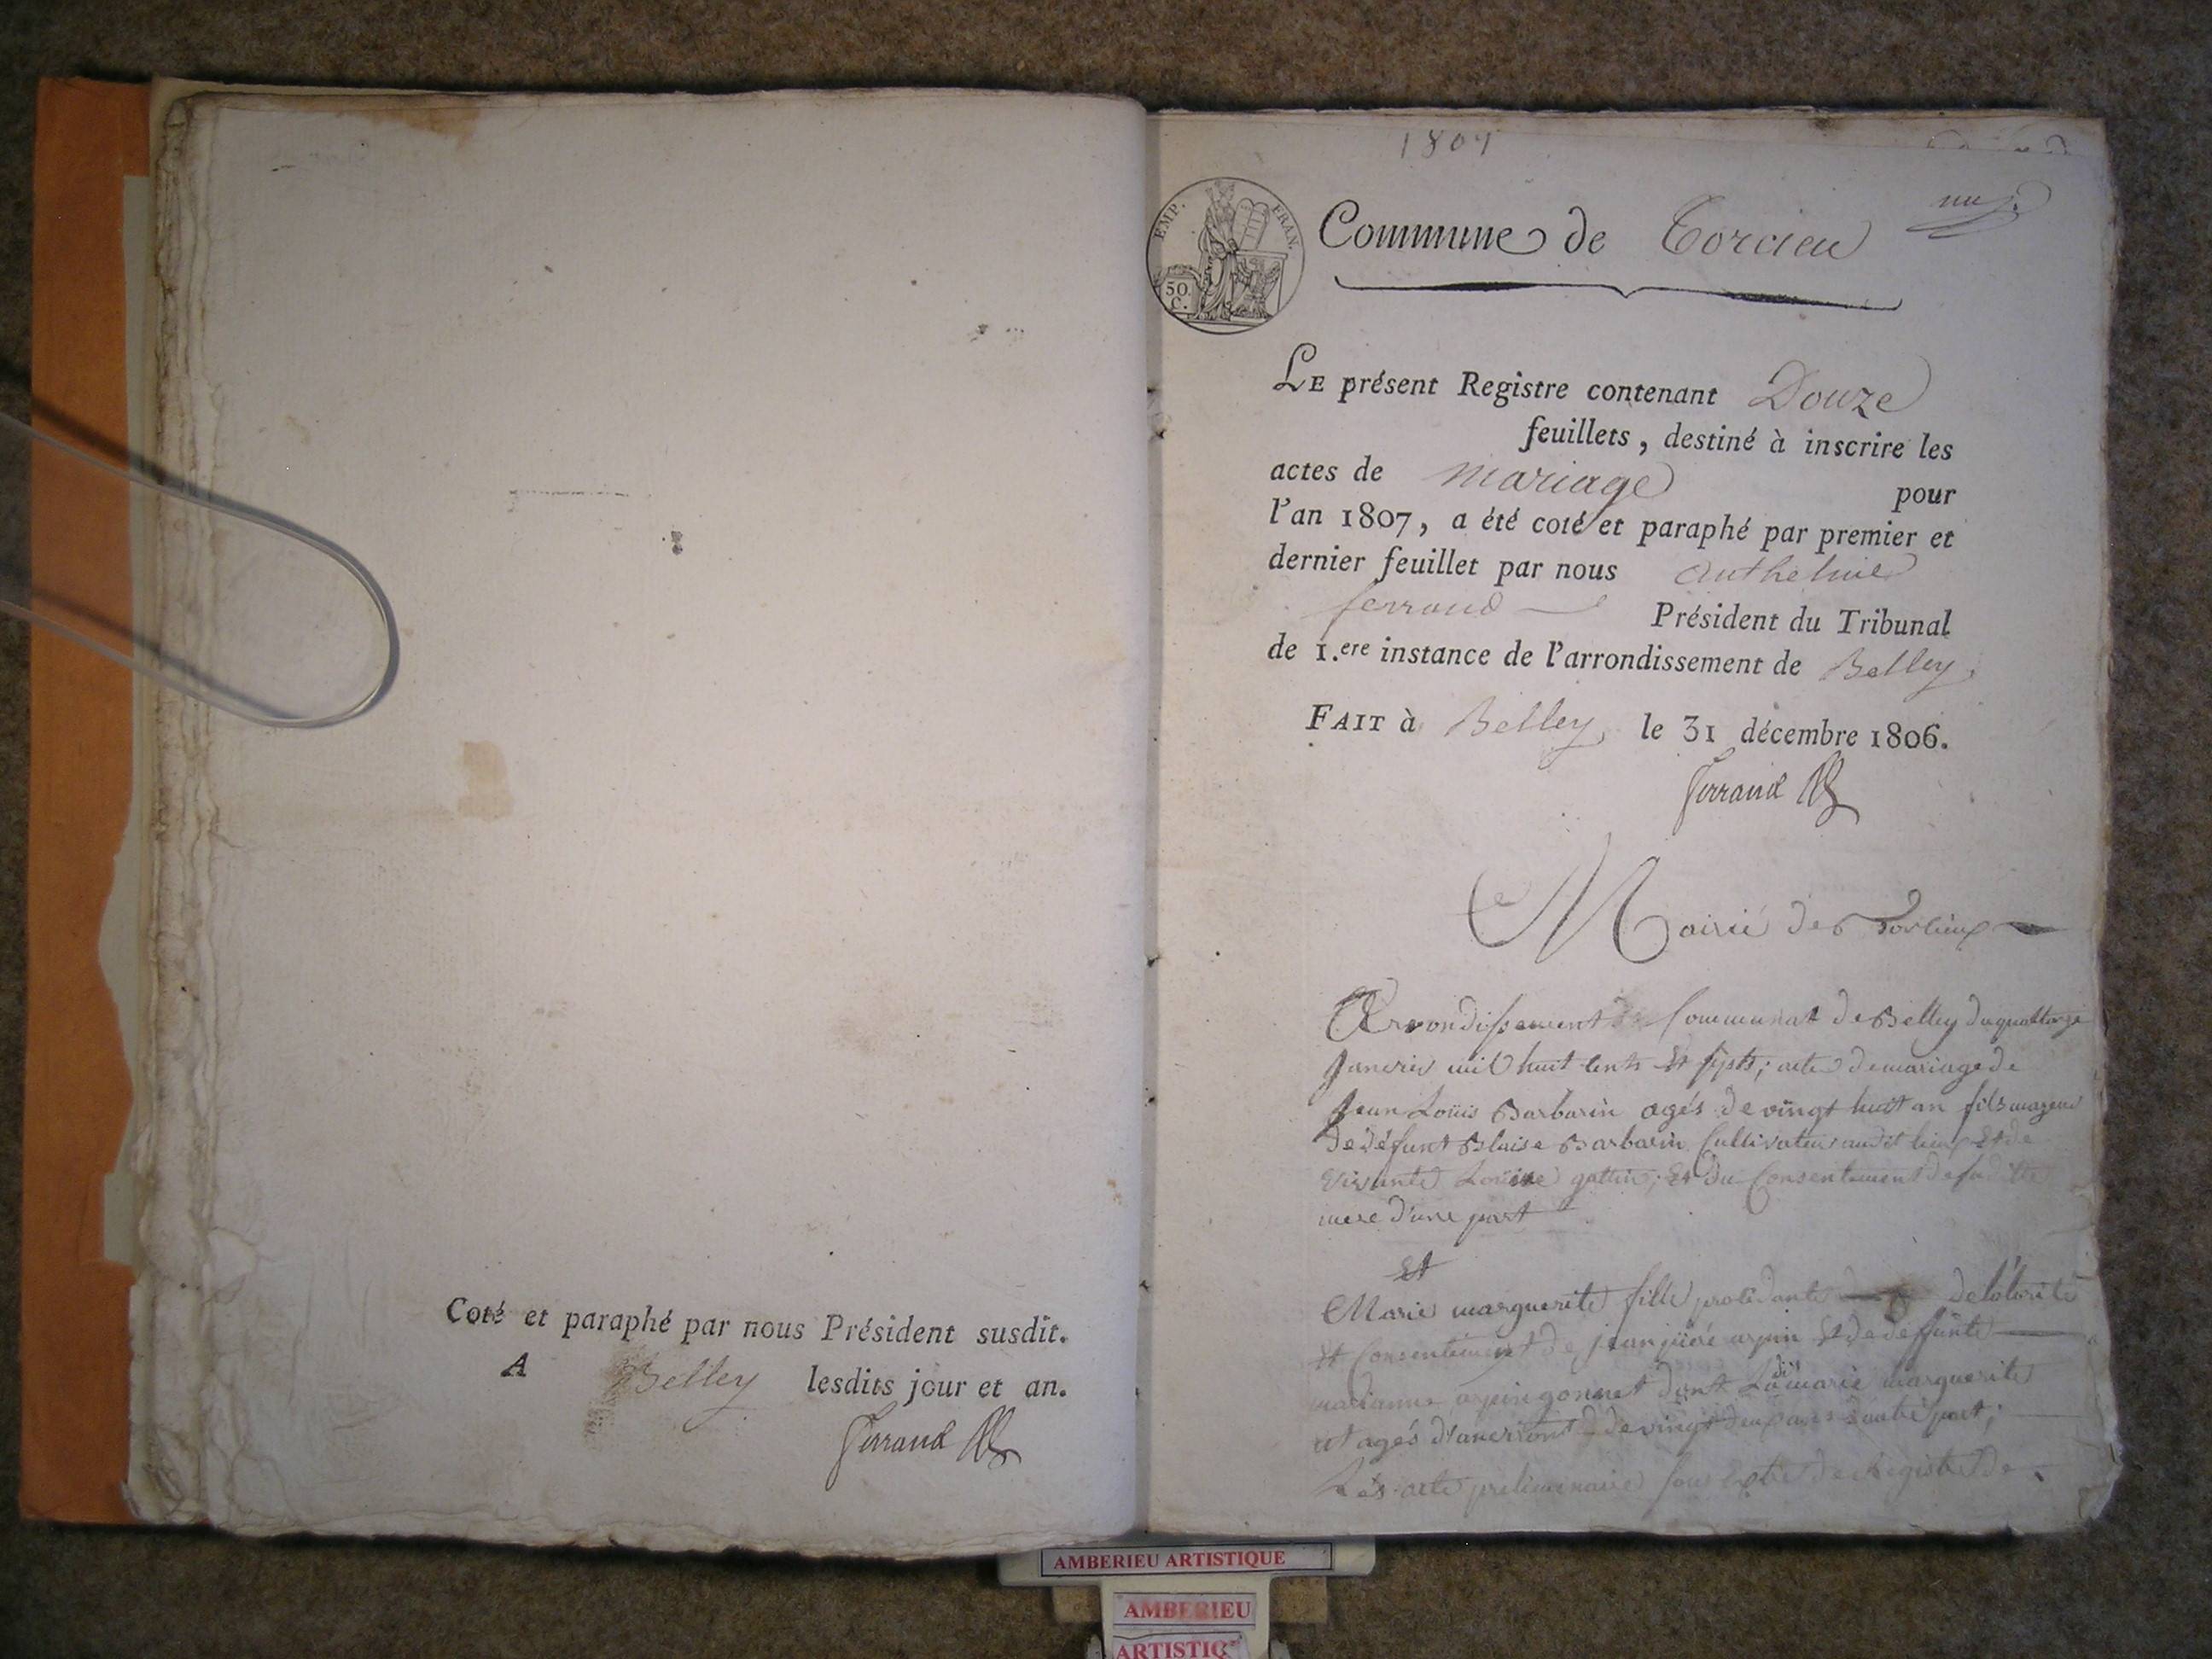 Coté et paraphé par nous Président susdit.
A Belley lesdits jour et an.
Ferrand
1807
EMP. FRAN.
50
C.
Commune de Torcieu
LE présent Registre contenant Douze
feuillets, destiné à inscrire les
actes de mariage pour
l'an 1807, a été coté et paraphé par premier et
dernier feuillet par nous Anthelme
ferrand Président du Tribunal
de 1.ere instance de l'arrondissement de Belley,
FAIT à Belley, le 31 décembre 1806.
Ferrand
Mairie de Torcieux
Arrondissement Communal de Belley du quattorze
Janvier mil huit cents et sept; acte de mariage de
Jean Loüis Barbarin agés de vingt huit an fils majeur
de défunt Blaise Barbarin Cultivateur audit lieux et de
vivante Loüise gottin; et du Consentement de sa ditte
mere d'une part
et
Marie marguerite fille de
et Consentement de jean arpin et de deffunte
marianne arpin gonnet dont marie marguerite
et agés d'environt de vingt deux ans d'autre part;
Les acte preliminaire sont Extrait de Registre de
AMBERIEU ARTISTIQUE
AMBERIEU
ARTISTIQ